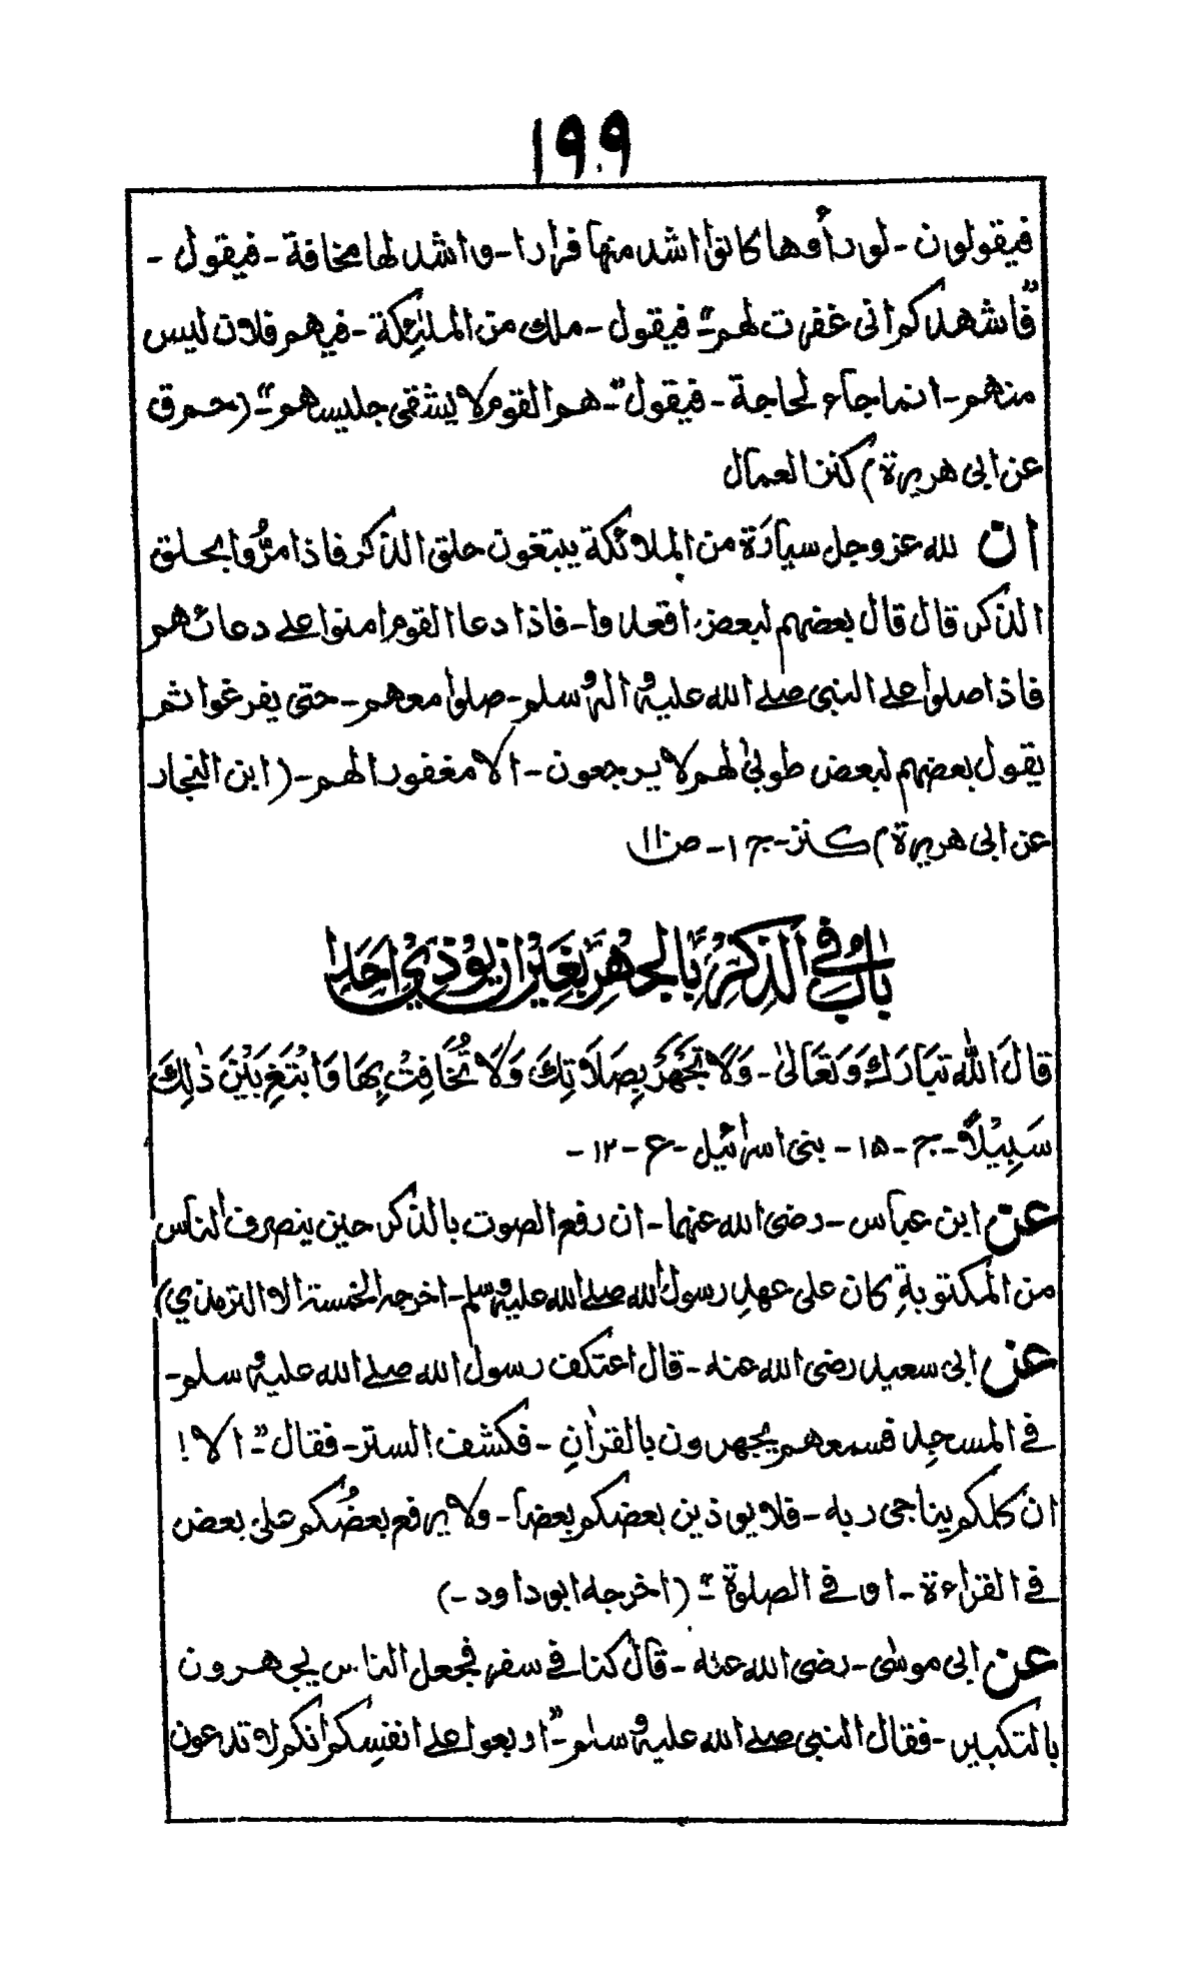 ١٩٩
فيقولون - لو رأوها كانوا اشد منها فرارا - واشد لها مخافة - فيقول -
"فاشهدكم انى غفرت لهم" فيقول - ملك من الملٰئِكة - فيهم فلان ليس
منهم - انما جاء لحاجة - فيقول "هم القوم لا يشقى جليسهم" (حم ق
عن ابى هريرة) كنز العمال
ان لله عز وجل سيارة من الملائكة يبتغون حلق الذكر فاذا مرُّوا بحلق
الذكر قال قال بعضهم لبعض اقعدوا - فاذا دعا القوم امنوا على دعائهم
فاذا صلوا على النبى صلے الله عليہ والہ وسلم - صلوا معهم - حتى يفرغوا ثم
يقول بعضهم لبعض طوبىٰ لهم لا يرجعون - الا مغفورا لهم - (ابن النجار
عن ابى هريرة) كنز - ج ١ - ص ١١
بابٌ فے الذِكرِ بِالجَهْرِ بِغَيْرِ ان يُوْذِيْ اَحَدا
قالَ اللهُ تبَارَكَ وَتَعَالىٰ - وَلَا تَجْهَرْ بِصَلَاتِكَ وَلَا تُخَافِتْ بِهَا وَابْتَغِ بَيْنَ ذٰلِكَ
سَبِيْلًا - ج - ١٥ - بنى اسرائيل - ع - ١٢ -
عن ابن عباس - رضى الله عنهما - ان رفع الصوت بالذكر حين ينصرف الناس
من المكتوبةِ كان على عهدِ رسول الله صلے الله عليہ وسلم - اخرجه الخمسة الا الترمذي)
عن ابى سعيد رضى الله عنه - قال اعتكف رسول الله صلے الله عليہ وسلم -
فے المسجِد فسمعهم يجهرون بالقراٰنِ - فكشف الستر - فقال "الا!
ان كلكم يناجى ربه - فلا يوذين بعضكم بعضا - ولا يرفع بعضُكم على بعض
فے القراءة - او فے الصلوة" (اخرجه ابو داود -)
عن ابى موسىٰ - رضى الله عنه - قال كنا فے سفر فجعل الناس يجهرون
بالتكبير - فقال النبى صلے الله عليہ وسلم - "اربعوا على انفسِكم انكم لا تدعون